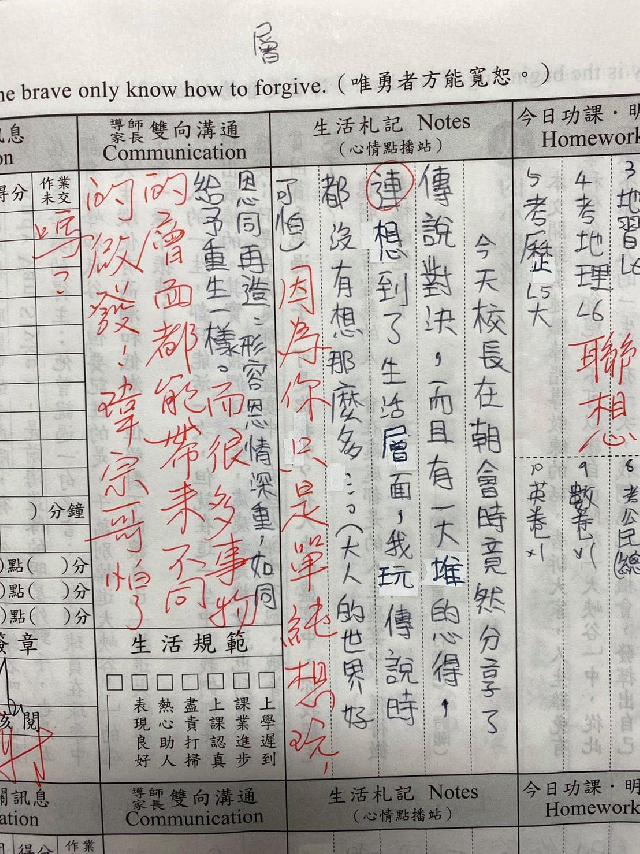 層
he brave only know how to forgive.（唯勇者方能寬恕。）
今日功課．明
Homework
3地習L6
4考地理L6
5考歷L5大
聯想
8考公民(總
9數卷x1
10英卷x1
生活札記 Notes
（心情點播站）
今天校長在朝會時竟然分享了
傳說對決，而且有一大堆的心得，
連想到了生活層面，我玩傳說時
都沒有想那麼多...(大人的世界好
可怕)因為你只是單純想玩，
導師家長 雙向溝通
Communication
恩同再造：形容恩情深重，如同
給予重生一樣。而很多事物
的層面都能帶來不同
的啟發！瑋宗哥怕了
嗎？
生活規範
上學遲到
課業進步
上課認真
盡責打掃
熱心助人
表現良好
訊息
on
得分
作業未交
）分鐘
）點( )分
）點( )分
）點( )分
簽章
閱
今日功課．明
Homework
生活札記 Notes
（心情點播站）
導師家長 雙向溝通
Communication
關訊息
ation
得分
作業